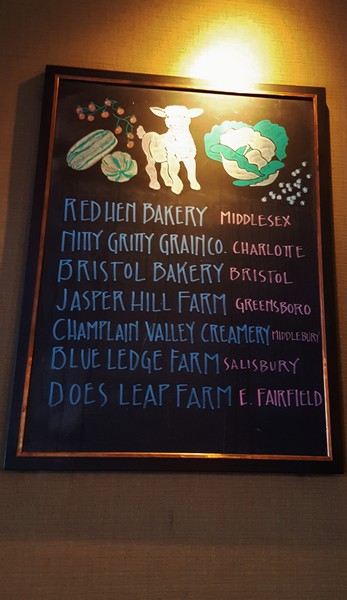 RED HEN BAKERY MIDDLESEX
NITTY GRITTY GRAIN CO. CHARLOTTE
BRISTOL BAKERY BRISTOL
JASPER HILL FARM GREENSBORO
CHAMPLAIN VALLEY CREAMERY MIDDLEBURY
BLUE LEDGE FARM SALISBURY
DOES LEAP FARM E. FAIRFIELD